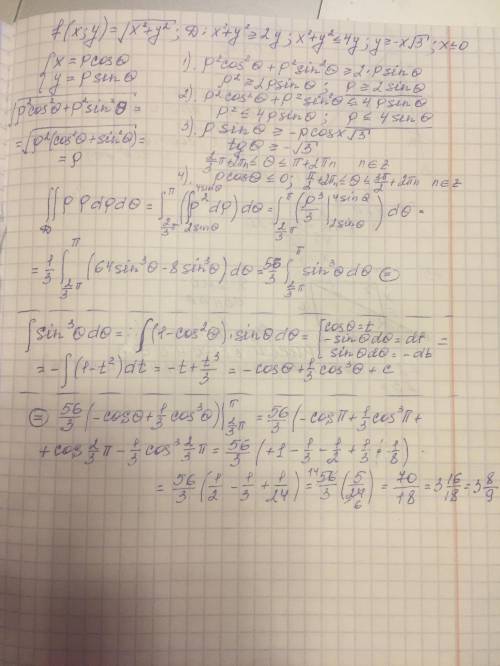 f(x;y)=√(x²+y²); D: x²+y²≥2y; x²+y²≤4y; y≥-x√3; x≤0
{x=ρcosθ
{y=ρsinθ
√(ρ²cos²θ+ρ²sin²θ)=
=√(ρ²(cos²θ+sin²θ))=
=ρ
1). ρ²cos²θ+ρ²sin²θ≥2·ρsinθ
ρ²≥2ρsinθ; ρ≥2sinθ
2). ρ²cos²θ+ρ²sin²θ≤4ρsinθ
ρ²≤4ρsinθ; ρ≤4sinθ
3). ρsinθ≥-ρcosθ√3
tgθ≥-√3
2/3π+2πn≤θ≤π+2πn n∈z
4). ρcosθ≤0; π/2+2πn≤θ≤3π/2+2πn n∈z
∬_D ρρdρdθ=∫_{2/3π}^{π}(∫_{2sinθ}^{4sinθ}ρ²dρ)dθ=∫_{2/3π}^{π}(ρ³/3|_{2sinθ}^{4sinθ})dθ=
=1/3∫_{2/3π}^{π}(64sin³θ-8sin³θ)dθ=56/3∫_{2/3π}^{π}sin³θdθ ⊜
∫sin³θdθ=∫(1-cos²θ)·sinθdθ=[cosθ=t
-sinθdθ=dt
sinθdθ=-dt]=
=-∫(1-t²)dt=-t+t³/3=-cosθ+1/3cos³θ+c
⊜ 56/3(-cosθ+1/3cos³θ)|_{2/3π}^{π}=56/3(-cosπ+1/3cos³π+
+cos2/3π-1/3cos³2/3π=56/3(+1-1/3-1/2+1/3·1/8)
=56/3(1/2-1/3+1/24)=56/3(5/24)=70/18=3 16/18=3 8/9